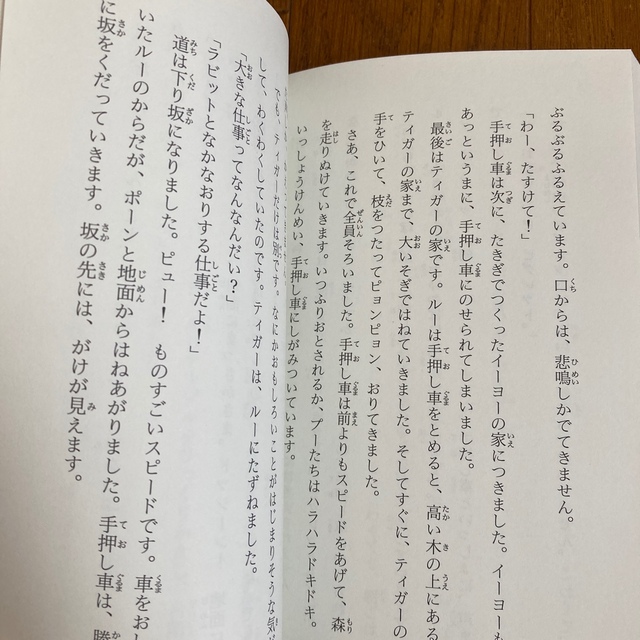 ぶるぶるふるえています。口からは、悲鳴しかでてきません。
「わー、たすけて！」
手押し車は次に、たきぎでつくったイーヨーの家につきました。イーヨーも
あっというまに、手押し車にのせられてしまいました。
最後はティガーの家です。ルーは手押し車をとめると、高い木の上にある
ティガーの家まで、大いそぎではねていきました。そしてすぐに、ティガーの
手をひいて、枝をつたってピョンピョン、おりてきました。
さあ、これで全員そろいました。手押し車は前よりもスピードをあげて、森
を走りぬけていきます。いつふりおとされるか、プーたちはハラハラドキドキ。
いっしょうけんめい、手押し車にしがみついています。
でも、ティガーだけは別です。なにかおもしろいことがはじまりそうな気が
して、わくわくしていたのです。ティガーは、ルーにたずねました。
「大きな仕事ってなんなんだい？」
「ラビットとなかなおりする仕事だよ！」
道は下り坂になりました。ピュー！　ものすごいスピードです。車をお
いたルーのからだが、ポーンと地面からはねあがりました。手押し車は、
に坂をくだっていきます。坂の先には、がけが見えます。